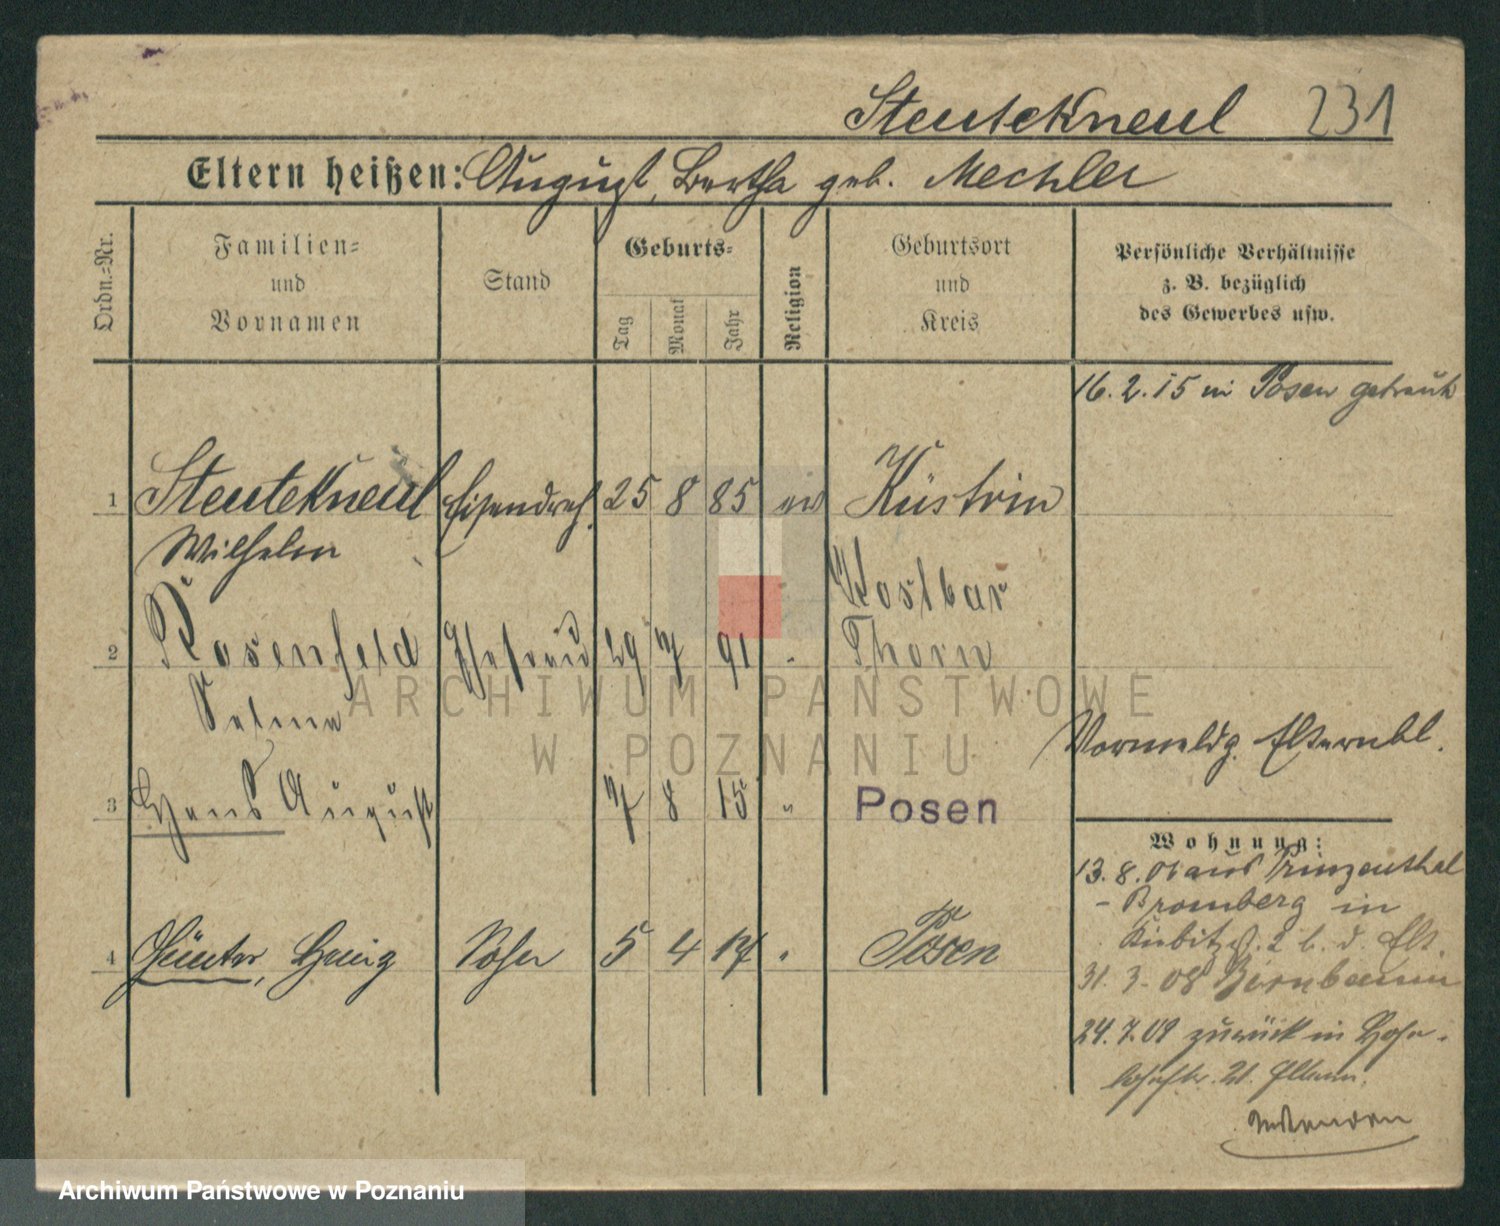 Steutekneul 231
Eltern heißen: August, Bertha geb. Mechler
Ordn.-Nr.
Familien-
und
Vornamen
Stand
Geburts-
Tag
Monat
Jahr
Religion
Geburtsort
und
Kreis
Persönliche Verhältnisse
z. B. bezüglich
des Gewerbes usw.
16.2.15 in Posen getraut
1 Steutekneul Eisendreh. 25 8 85 ev Küstrin
Wilhelm
Kostbar
2 Rosenfeld Ehefrau 29 7 91 " Thorn
Selma
ARCHIWUM PAŃSTWOWE
W POZNANIU
Vormeldg. Elternbl.
3 Hans August 7 8 15 " Posen
Wohnung:
13.8.06 aus Prinzenthal
- Bromberg in
2 b. d. Elt.
4 Günter, Georg Sohn 5 4 17 " Posen
31.3.08 Birnbaum
24.7.09 zurück in
21.
Archiwum Państwowe w Poznaniu